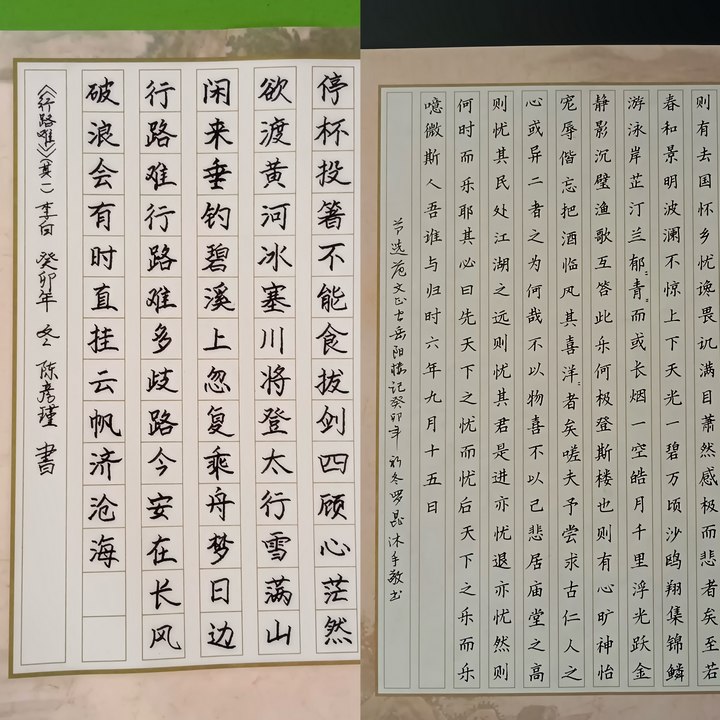 停杯投箸不能食拔剑四顾心茫然
欲渡黄河冰塞川将登太行雪满山
闲来垂钓碧溪上忽复乘舟梦日边
行路难行路难多歧路今安在长风
破浪会有时直挂云帆济沧海
《行路难》(其一) 李白 癸卯年 冬 陈彦瑾 書
则有去国怀乡忧谗畏讥满目萧然感极而悲者矣至若
春和景明波澜不惊上下天光一碧万顷沙鸥翔集锦鳞
游泳岸芷汀兰郁〻青〻而或长烟一空皓月千里浮光跃金
静影沉璧渔歌互答此乐何极登斯楼也则有心旷神怡
宠辱偕忘把酒临风其喜洋〻者矣嗟夫予尝求古仁人之
心或异二者之为何哉不以物喜不以己悲居庙堂之高
则忧其民处江湖之远则忧其君是进亦忧退亦忧然则
何时而乐耶其必曰先天下之忧而忧后天下之乐而乐
噫微斯人吾谁与归时六年九月十五日
节选范文正 岳阳楼记癸卯年初冬罗 沐手敬书